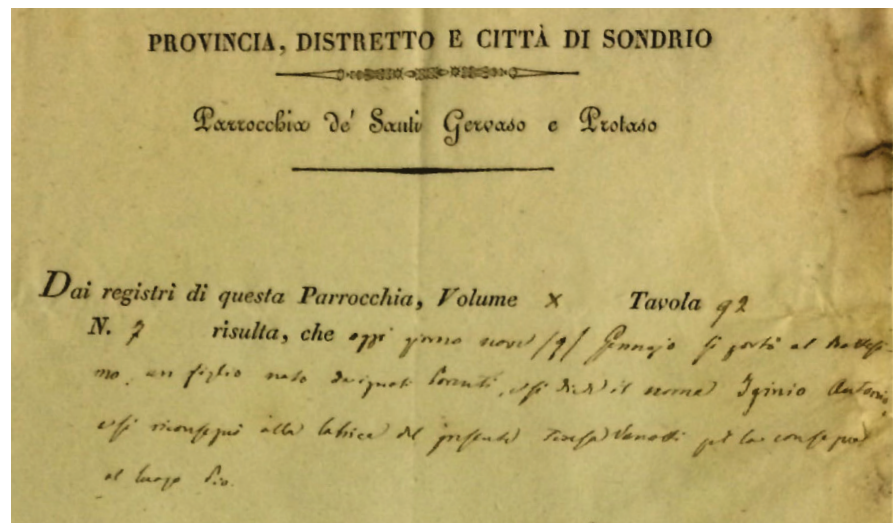 PROVINCIA, DISTRETTO E CITTÀ DI SONDRIO
Parrocchia de' Santi Gervaso e Protaso
Dai registri di questa Parrocchia, Volume X Tavola 92
N. 7 risulta, che oggi giorno nove /9/ Gennajo si portò al Battesi-
mo, un figlio nato da ignoti Parenti, e si diede il nome Iginio Antonio,
e si riconsegnò alla latrice del presente Teresa per la consegna
al luogo Pio.